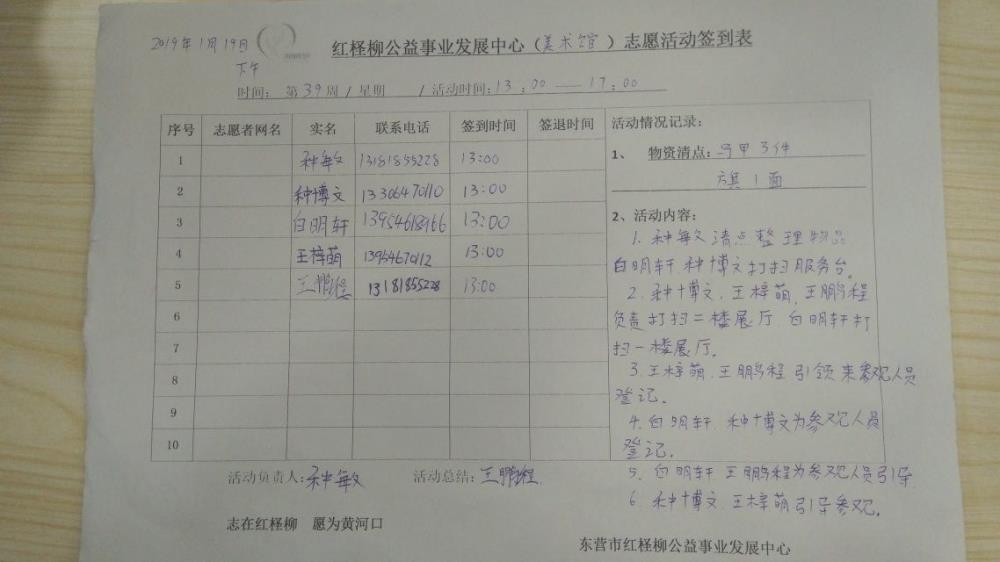 2019年1月19日
下午
红柽柳公益事业发展中心（美术馆）志愿活动签到表
时间： 第39周 / 星期 / 活动时间：13：00 —— 17：00
序号 志愿者网名 实名 联系电话 签到时间 签退时间
1 种敏 13181855228 13:00
2 种博文 13306470110 13:00
3 白明轩 13954618966 13:00
4 王梓萌 13954670112 13:00
5 王鹏程 13181855228 13:00
6
7
8
9
10
活动情况记录：
1、 物资清点：马甲3件
旗1面
2、活动内容：
1. 种敏清点整理物品
白明轩.种博文打扫服务台。
2. 种博文.王梓萌.王鹏程
负责打扫二楼展厅 白明轩打
扫一楼展厅。
3.王梓萌.王鹏程引领来参观人员
登记。
4.白明轩.种博文为参观人员
登记。
5. 白明轩 王鹏程为参观人员引导
6. 种博文.王梓萌引导参观。
活动负责人：种敏 活动总结：王鹏程
志在红柽柳 愿为黄河口
东营市红柽柳公益事业发展中心